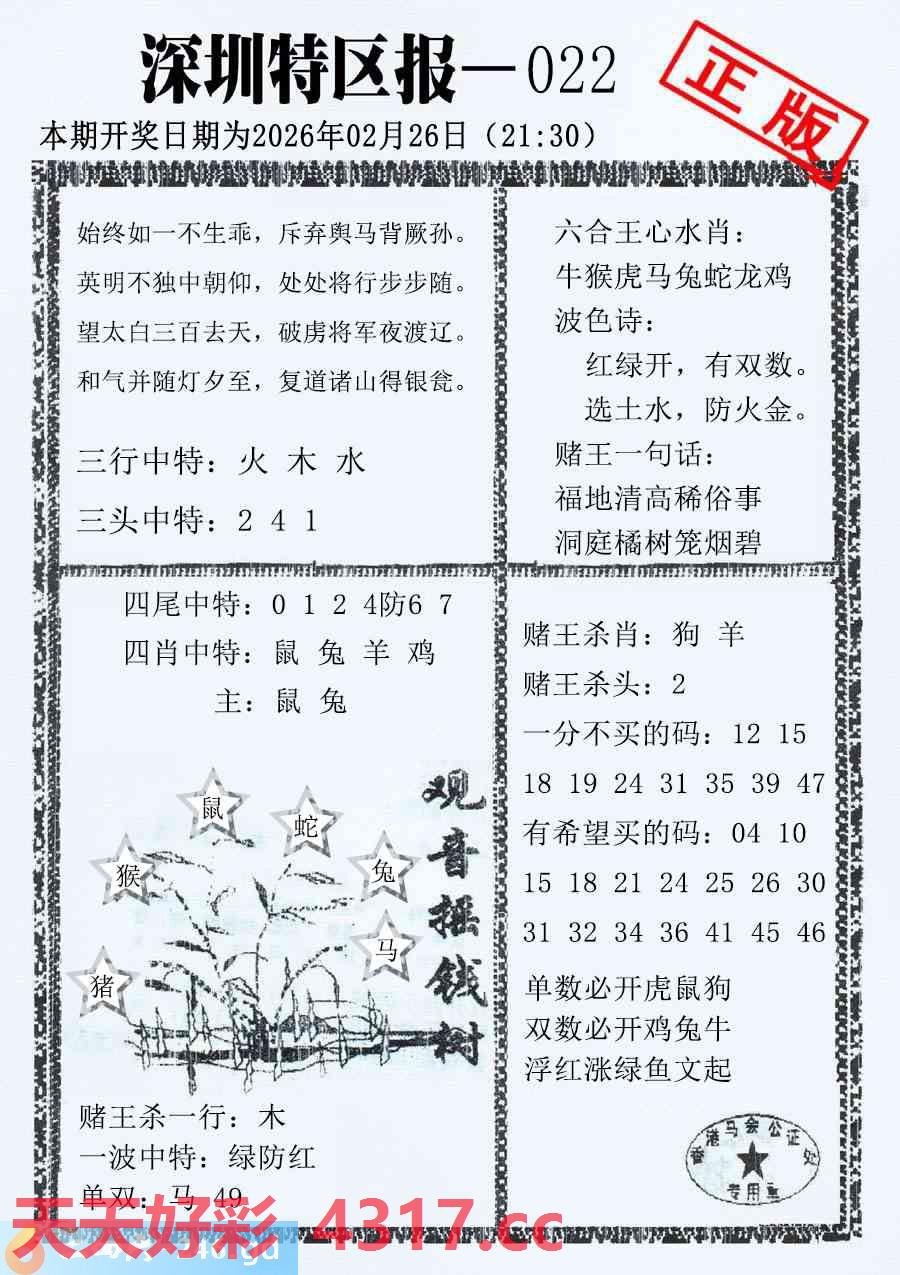 深圳特区报—022
正版
本期开奖日期为2026年02月26日（21:30）
始终如一不生乖，斥弃舆马背厥孙。
英明不独中朝仰，处处将行步步随。
望太白三百去天，破虏将军夜渡辽。
和气并随灯夕至，复道诸山得银瓮。
三行中特：火 木 水
三头中特：2 4 1
六合王心水肖：
牛猴虎马兔蛇龙鸡
波色诗：
红绿开，有双数。
选土水，防火金。
赌王一句话：
福地清高稀俗事
洞庭橘树笼烟碧
四尾中特：0 1 2 4防6 7
四肖中特：鼠 兔 羊 鸡
主：鼠 兔
鼠
蛇
猴
兔
马
猪
观音摇钱树
赌王杀一行：木
一波中特：绿防红
单双：马 49
赌王杀肖：狗 羊
赌王杀头：2
一分不买的码：12 15
18 19 24 31 35 39 47
有希望买的码：04 10
15 18 21 24 25 26 30
31 32 34 36 41 45 46
单数必开虎鼠狗
双数必开鸡兔牛
浮红涨绿鱼文起
香港马会公证处
专用章
天天好彩 4317.cc